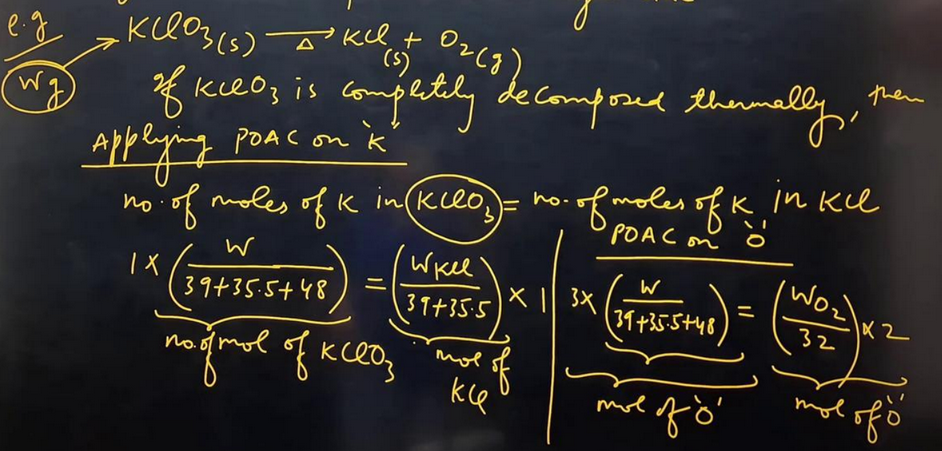 e.g
KClO3(s) →Δ KCl(s) + O2(g)
Wg
If KClO3 is completely decomposed thermally, then
Applying POAC on 'K'
no. of moles of K in KClO3 = no. of moles of K in KCl
1 × (W / 39+35.5+48) = (WKCl / 39+35.5) × 1
no. of mol of KClO3
mol of KCl
POAC on 'O'
3 × (W / 39+35.5+48) = (WO2 / 32) × 2
mol of 'O'
mol of 'O'